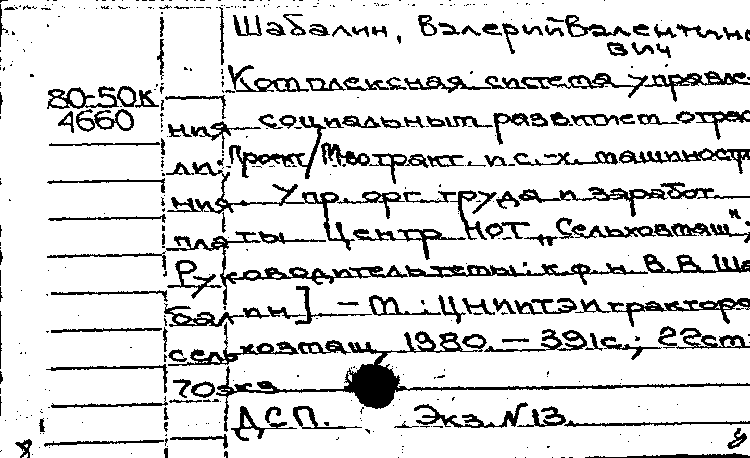 Шабалин, Валерий Валентино
вич
Комплексная система управле
80-50К
4660
ния социальным развитием отрас
ли: Проект/М-во тракт. и с.-х. машиностр
ния. Упр. орг. труда и заработ.
платы Центр НОТ „Сельхозмаш";
Руководитель темы: к.ф.н. В.В. Ша
балин] – М.: ЦНИИТЭИтракторо
сельхозмаш, 1980. – 391с.; 22см
70экз
ДСП. Экз. N13.